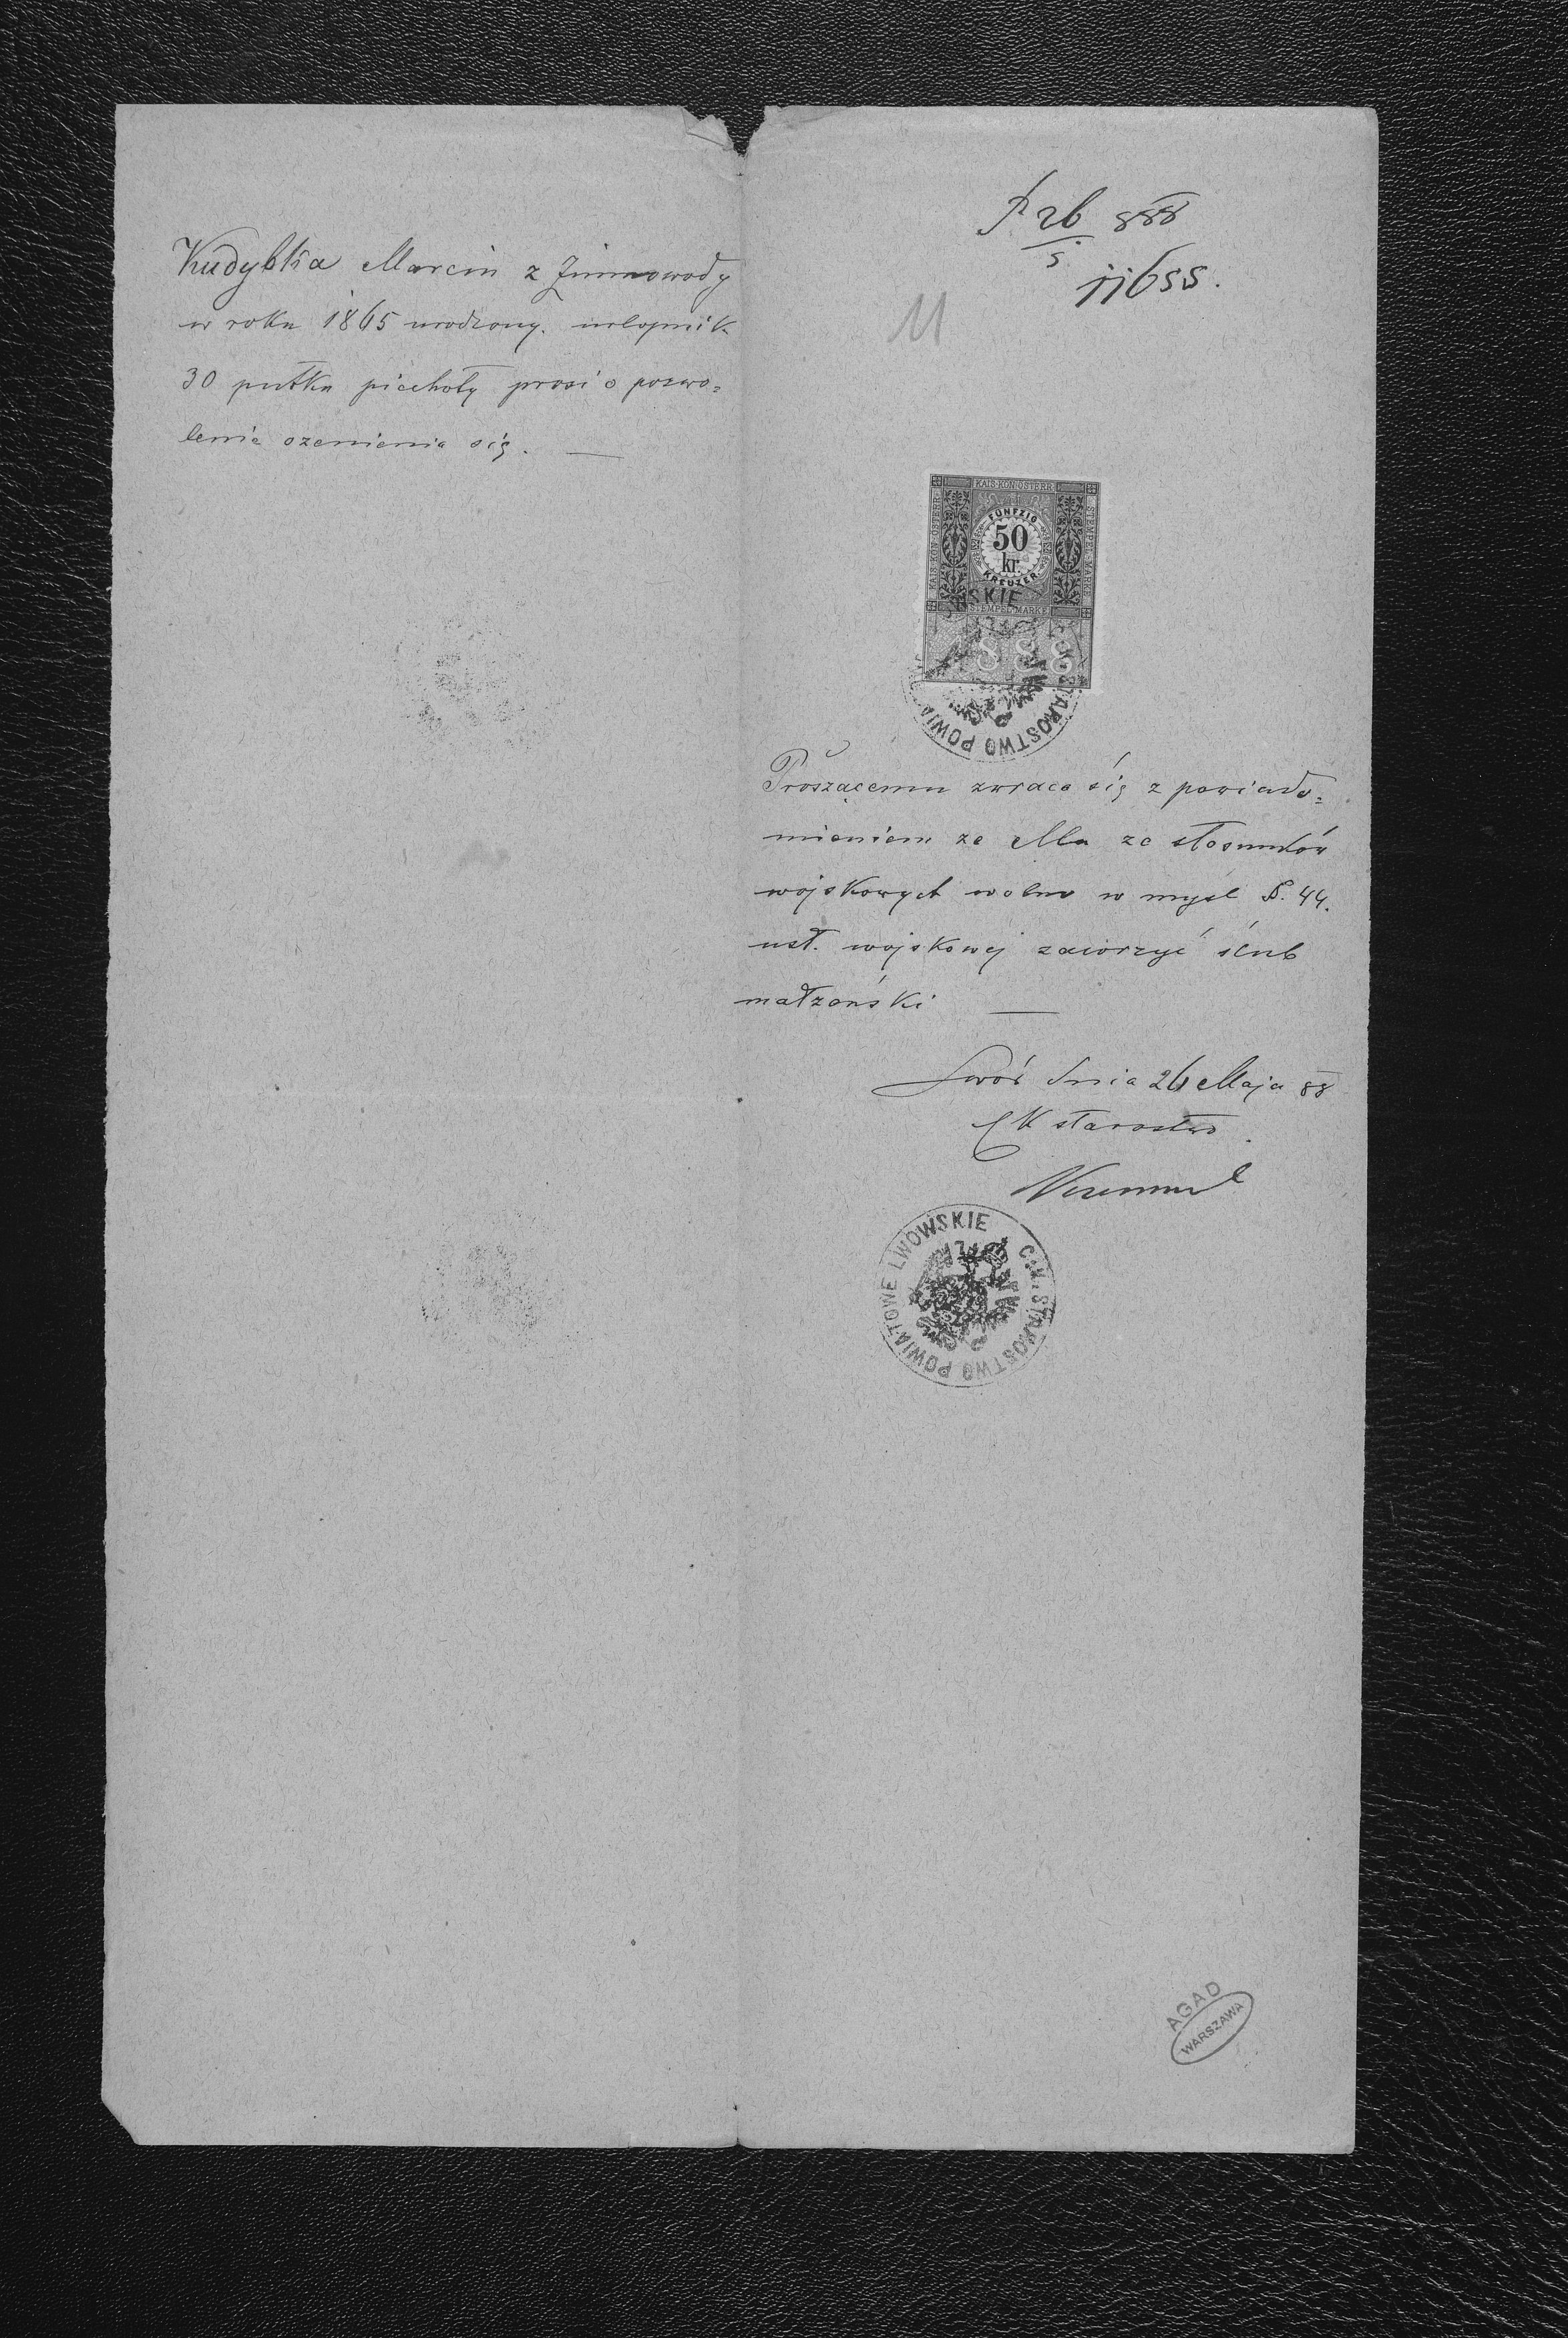 Kudybka Marcin z Zimnowody
w roku 1865 urodzony. urlopnik
30 pułku piechoty prosi o pozwo=
lenie ozenienia się. —
P. 26/5 888
11655.
11
KAIS. KÖN. ÖSTERR.
KAIS. KÖN. ÖSTERR.
STEMPEL MARKE
FÜNFZIG
50
kr.
KREUZER
STEMPEL MARKE
888
SKIE C.K. STAROSTWO POWIA
Proszącemu zwraca się z powiado=
mieniem ze Mu ze stosunków
wojskowych wolno w mysl §. 44.
ust. wojskowej zawrzyć ślub
małzeński —
Lwów dnia 26 Maja 88
CK starostwo
C.K. STAROSTWO POWIATOWE LWOWSKIE
AGAD
WARSZAWA